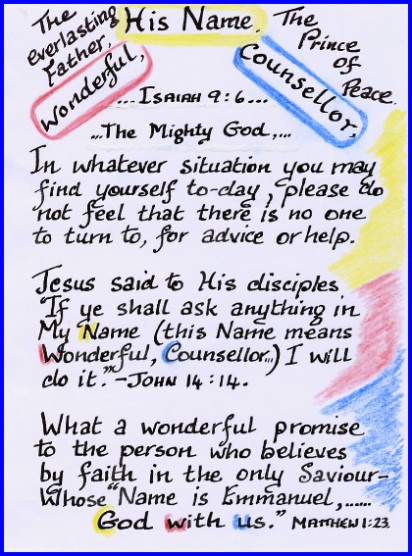 The everlasting Father,
His Name.
The Prince of Peace.
Wonderful,
Counsellor,
...Isaiah 9:6...
...The Mighty God,...
In whatever situation you may
find yourself to-day, please do
not feel that there is no one
to turn to, for advice or help.
Jesus said to His disciples
"If ye shall ask anything in
My Name (this Name means
Wonderful, Counsellor...) I will
do it."-John 14:14.
What a wonderful promise
to the person who believes
by faith in the only Saviour-
Whose "Name is Emmanuel,......
God with us." Matthew 1:23.